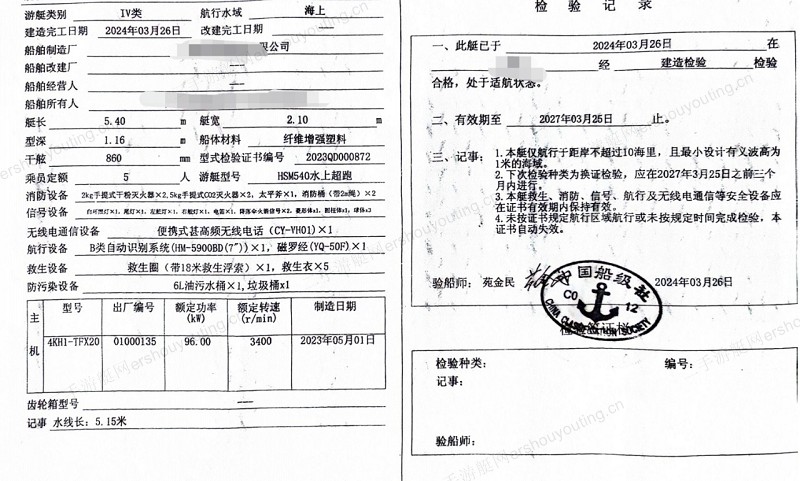 游艇类别 IV类 航行水域 海上
建造完工日期 2024年03月26日 改建完工日期 ——
船舶制造厂 限公司
船舶改建厂 ——
船舶经营人 ——
船舶所有人
艇长 5.40 m 艇宽 2.10 m
型深 1.16 m 船体材料 纤维增强塑料
干舷 860 mm 型式检验证书编号 2023QD000872
乘员定额 5 人 游艇型号 HSM540水上超跑
消防设备 2kg手提式干粉灭火器×2,5kg手提式CO2灭火器×2，太平斧×1，消防桶（带2m绳）×2
信号设备
无线电通信设备 便携式甚高频无线电话（CY-VH01）×1
航行设备 B类自动识别系统(HM-5900BD(7"))×1，磁罗经(YQ-50F)×1
救生设备 救生圈（带18米救生浮索）×1，救生衣×5
防污染设备 6L油污水桶×1,垃圾桶x1
主机
型号 出厂编号 额定功率(kW) 额定转速(r/min) 制造日期
4KH1-TFX20 01000135 96.00 3400 2023年05月01日
齿轮箱型号 ——
记事 水线长：5.15米
检 验 记 录
一、此艇已于 2024年03月26日 在
经 建造检验 检验
合格，处于适航状态。
二、有效期至 2027年03月25日 止。
三、记事：
1.本艇仅航行于距岸不超过10海里，且最小设计有义波高为
1米的海域。
2.下次检验种类为换证检验，应在2027年3月25日之前三个
月内进行。
3.本艇救生、消防、信号、航行及无线电通信等安全设备应
在证书有效期内保持有效。
4.未按证书规定航行区域航行或未按规定时间完成检验，本
证书自动失效。
验船师： 苑金民 2024年03月26日
中国船级社
CO 12
CHINA CLASSIFICATION SOCIETY
检验种类： 编号：
记事：
验船师：
手游艇网ershouyouting.cn